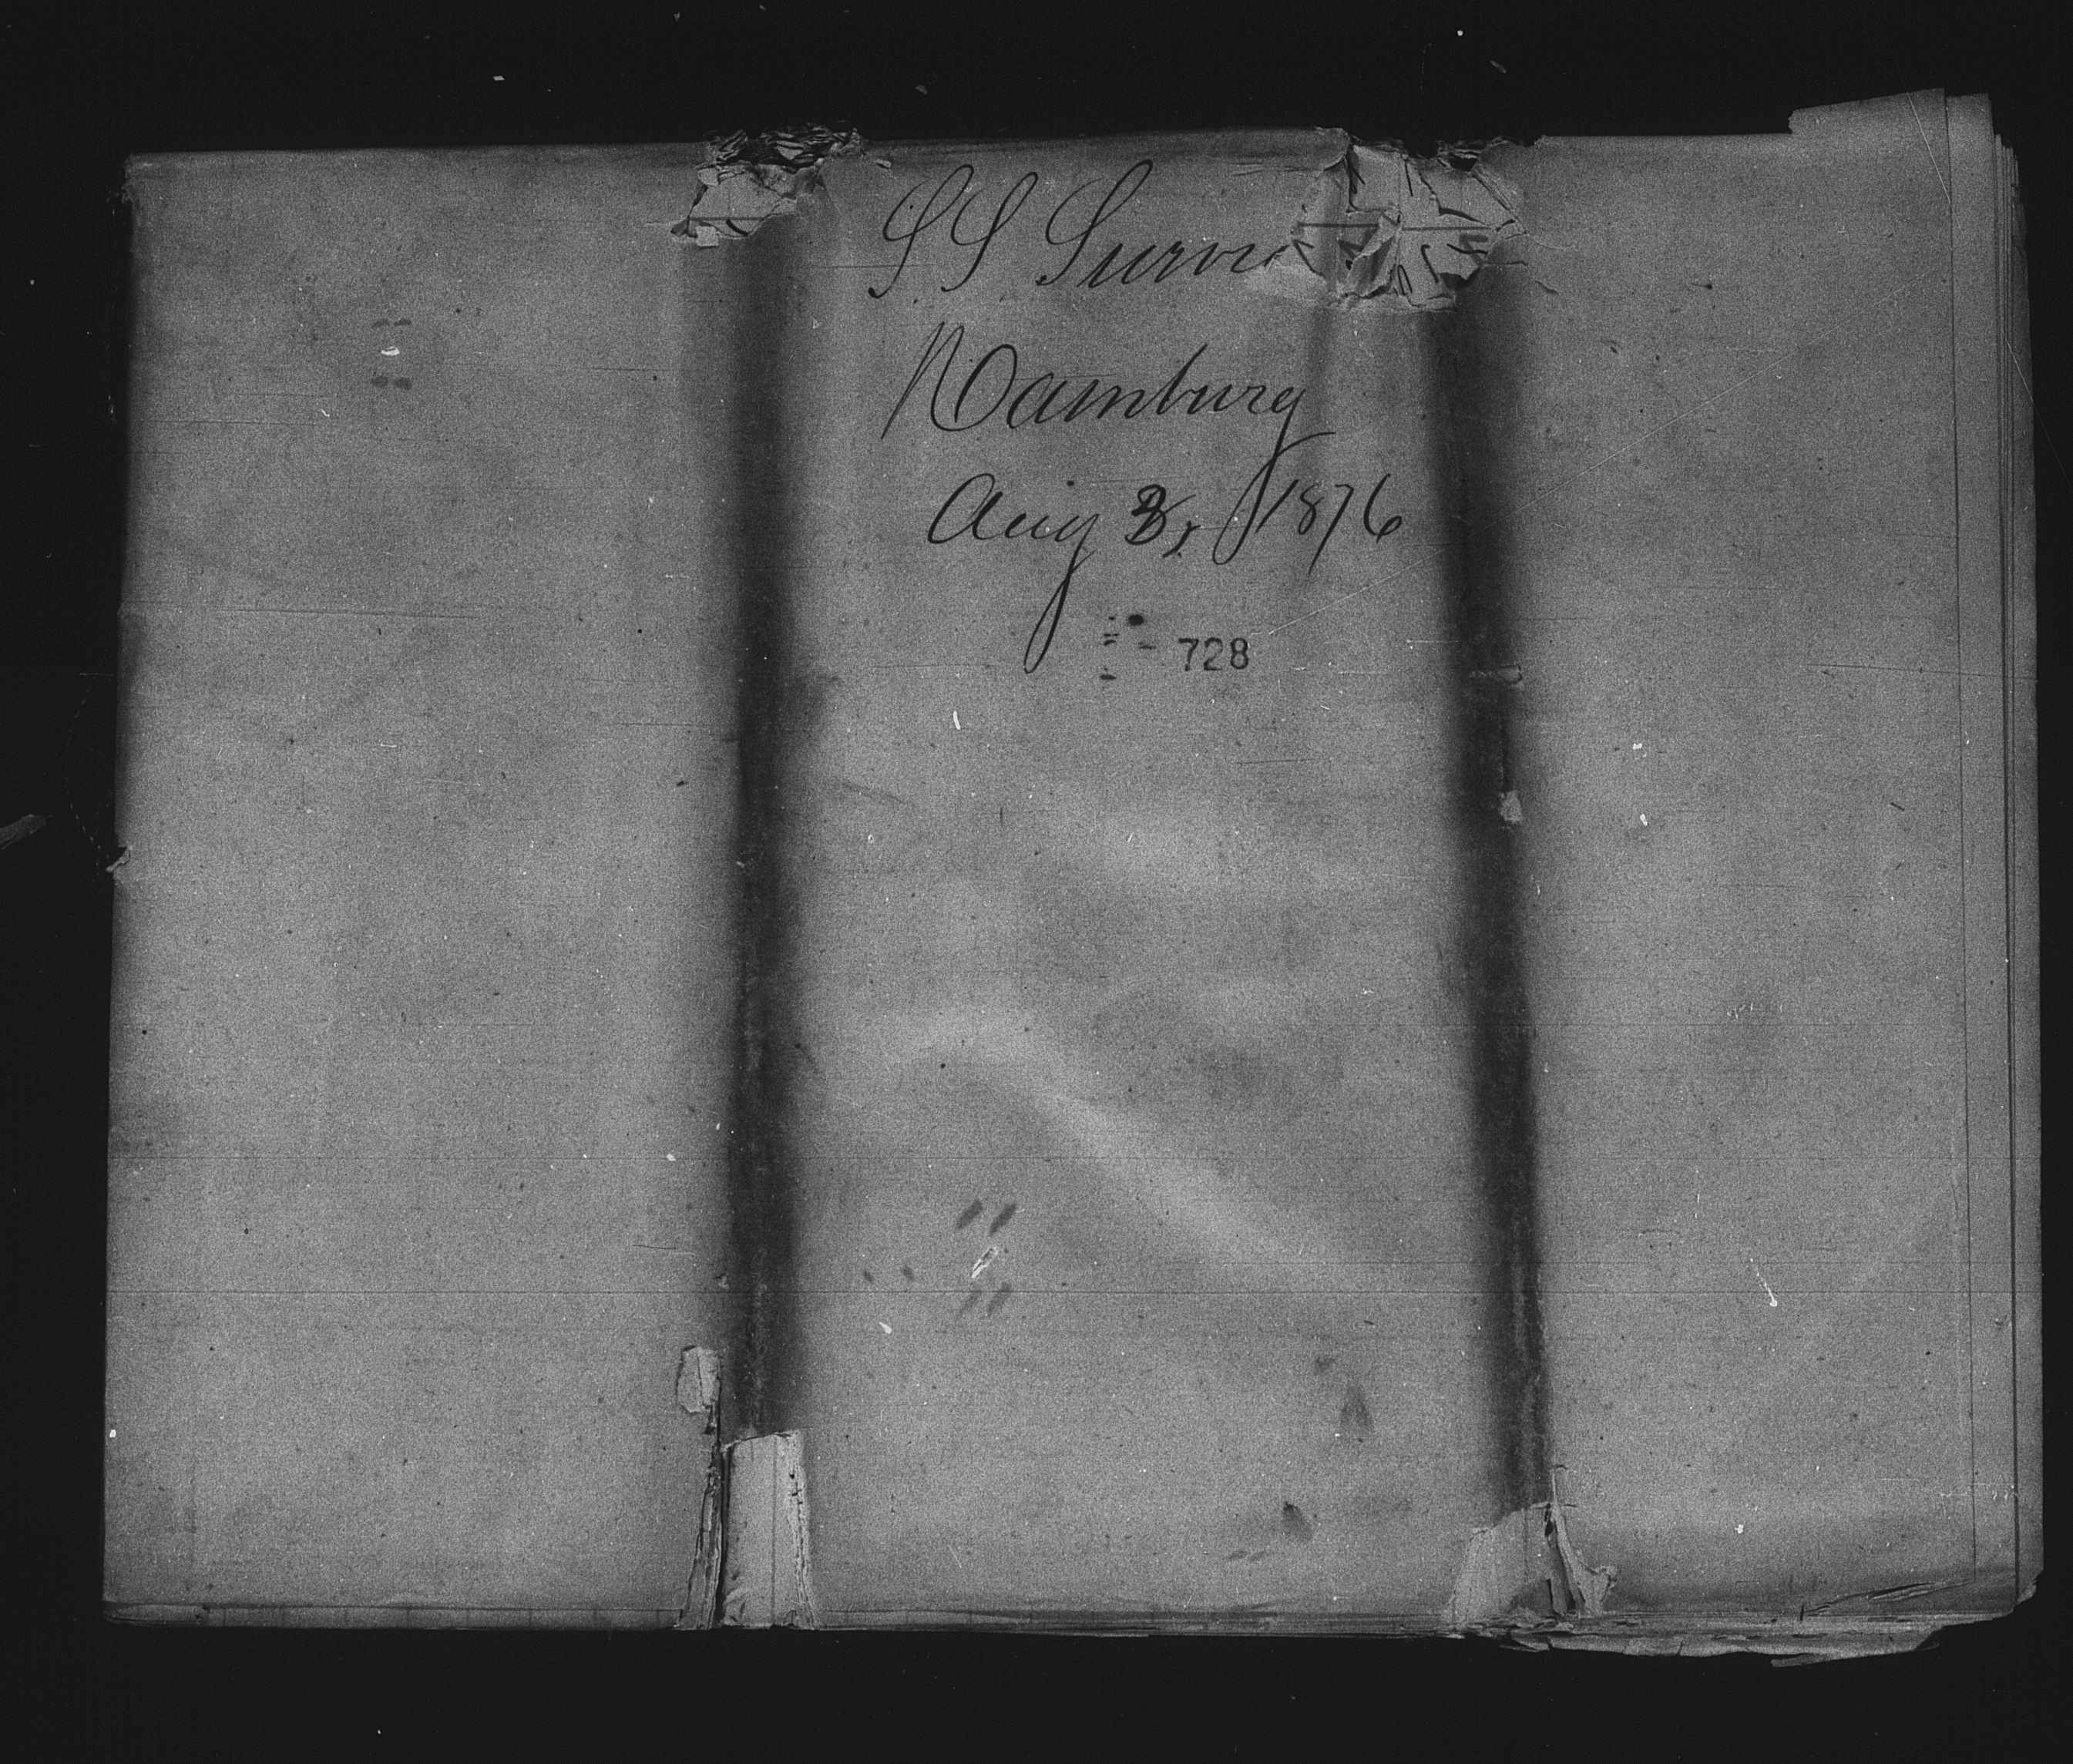 S.S. Suev
Hamburg
Aug 3, 1876
728